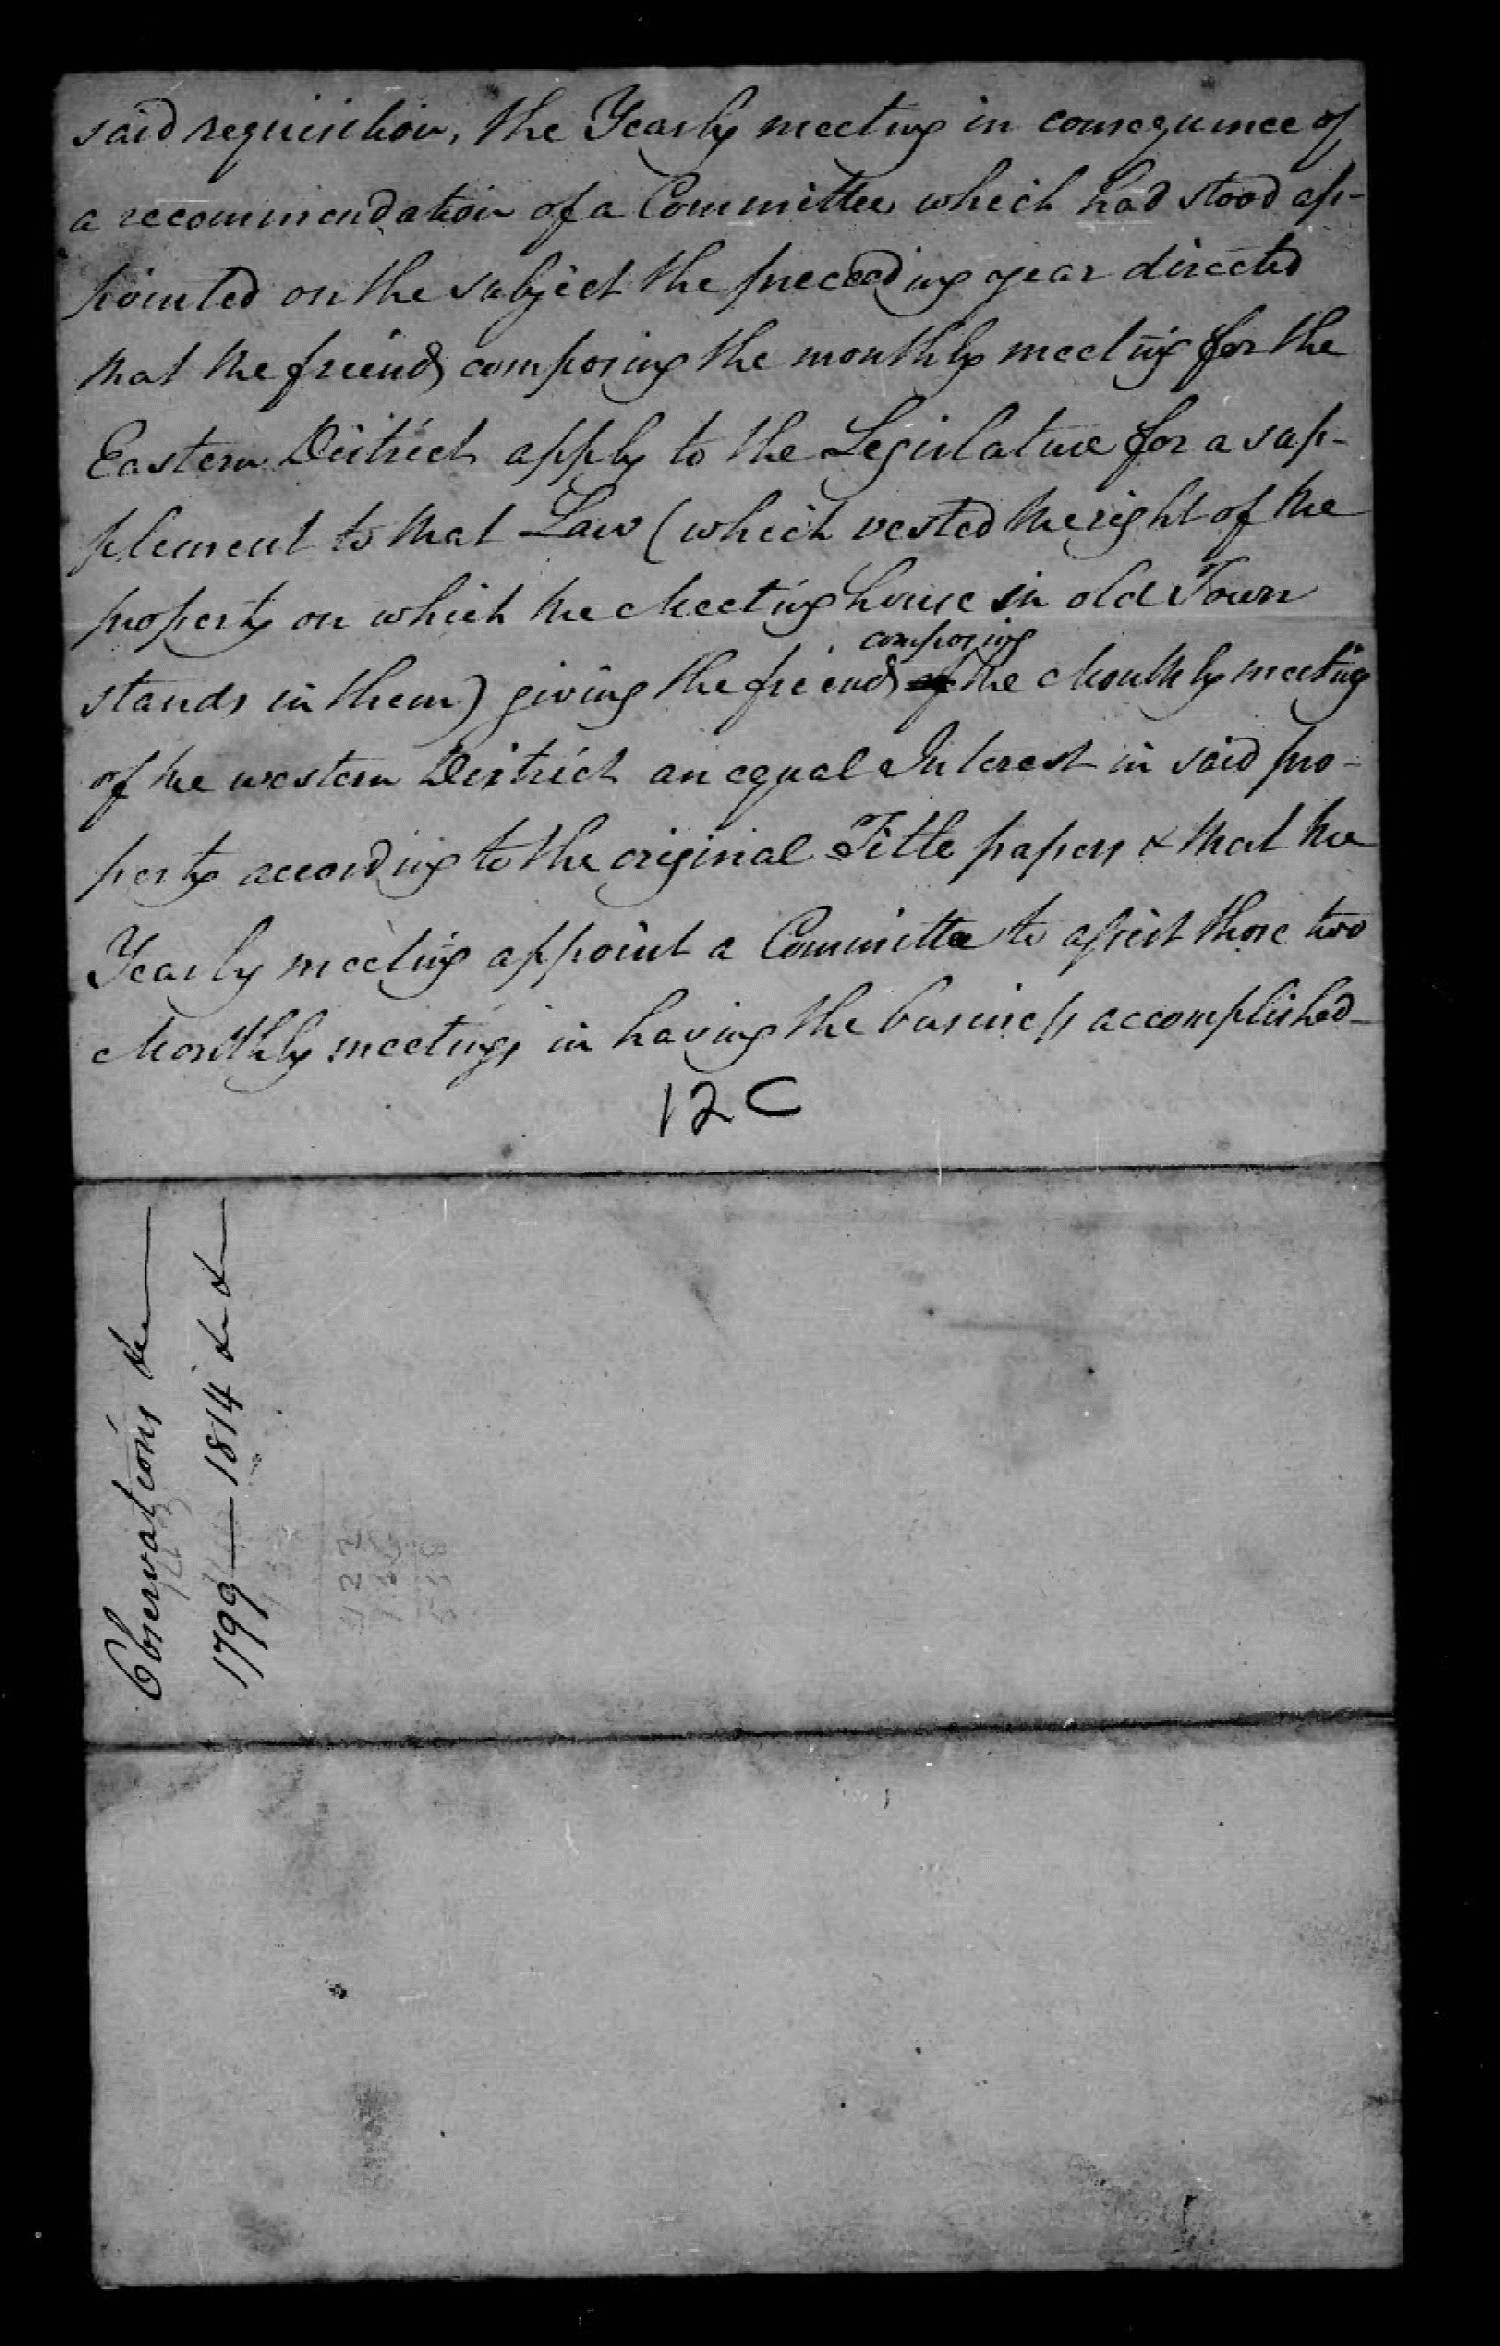 said requisition, the Yearly meeting in consequence of
a recommendation of a Committee which had stood ap-
pointed on the subject the preceeding year directed
that the friends composing the monthly meeting for the
Eastern District apply to the Legislature for a sup-
plement to that Law (which vested the right of the
property on which the Meeting house in old Town
composing
stands in them) giving the friends of the Monthly meeting
of the western District an equal Interest in said pro-
perty according to the original Title papers & that the
Yearly meeting appoint a Committee to assist those two
Monthly meetings in having the business accomplished
12 C
Observations &c
1799 — 1814 &c &c